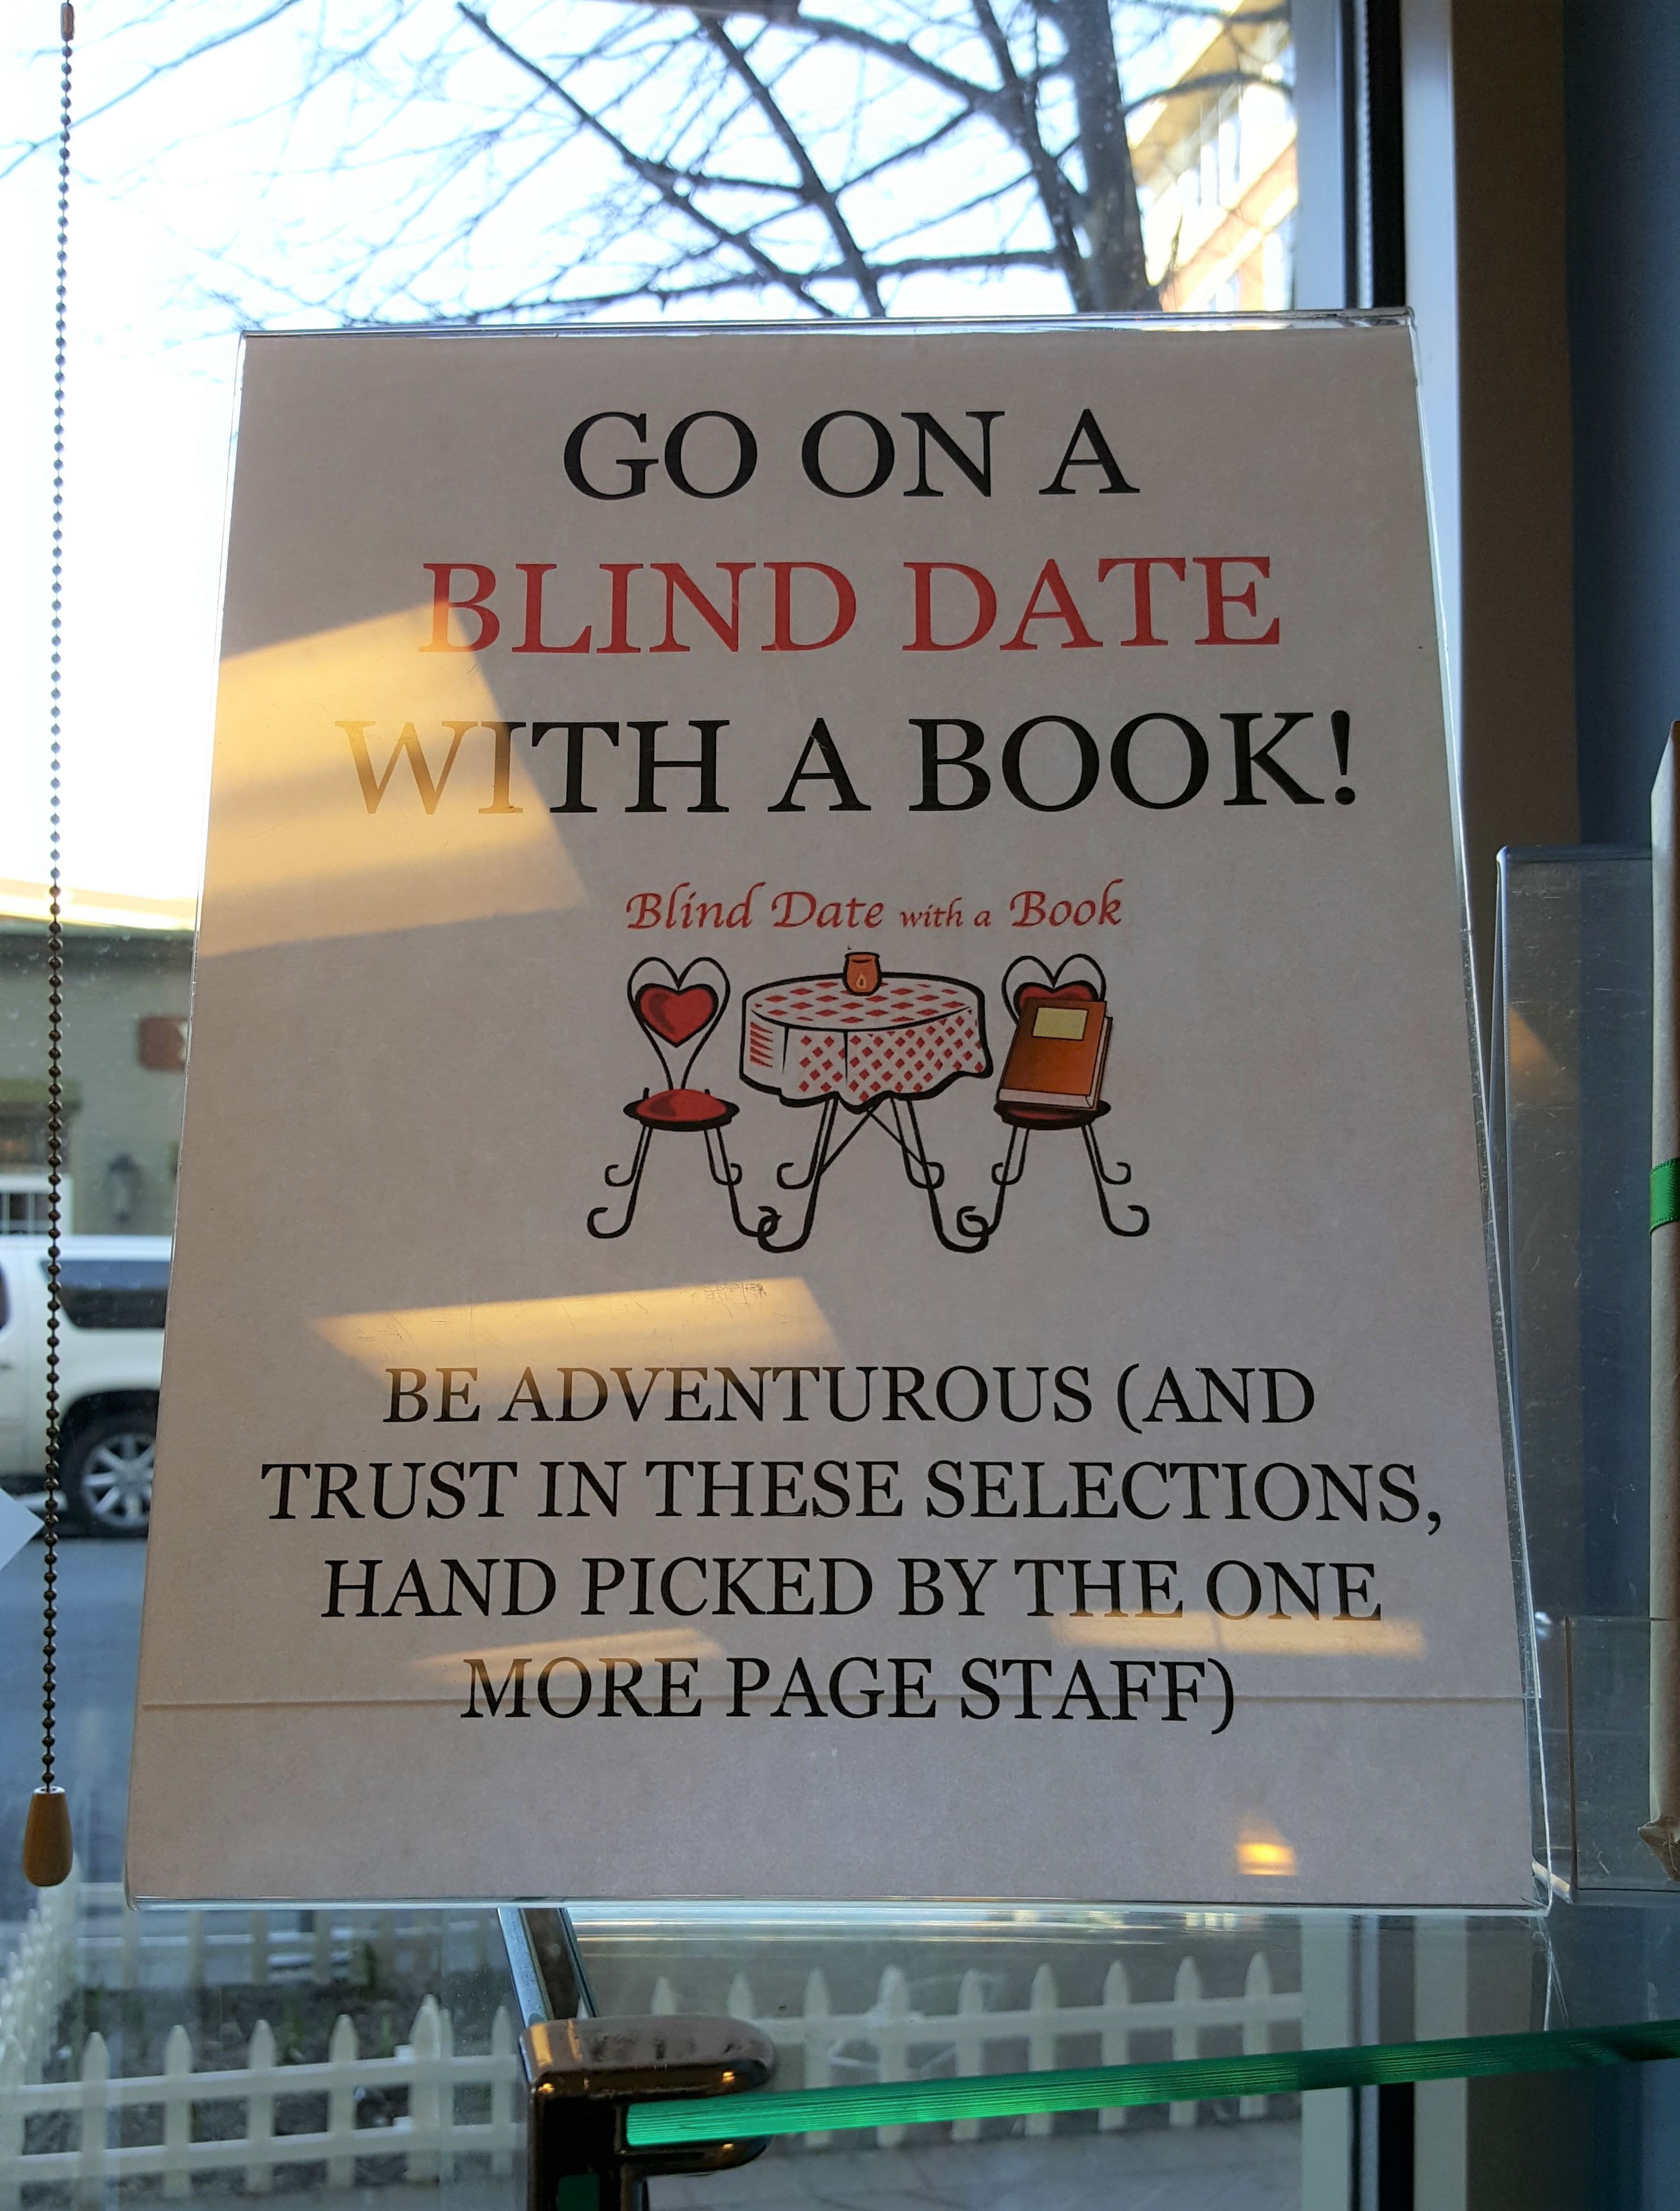 GO ON A
BLIND DATE
WITH A BOOK!
Blind Date with a Book
BE ADVENTUROUS (AND
TRUST IN THESE SELECTIONS,
HAND PICKED BY THE ONE
MORE PAGE STAFF)